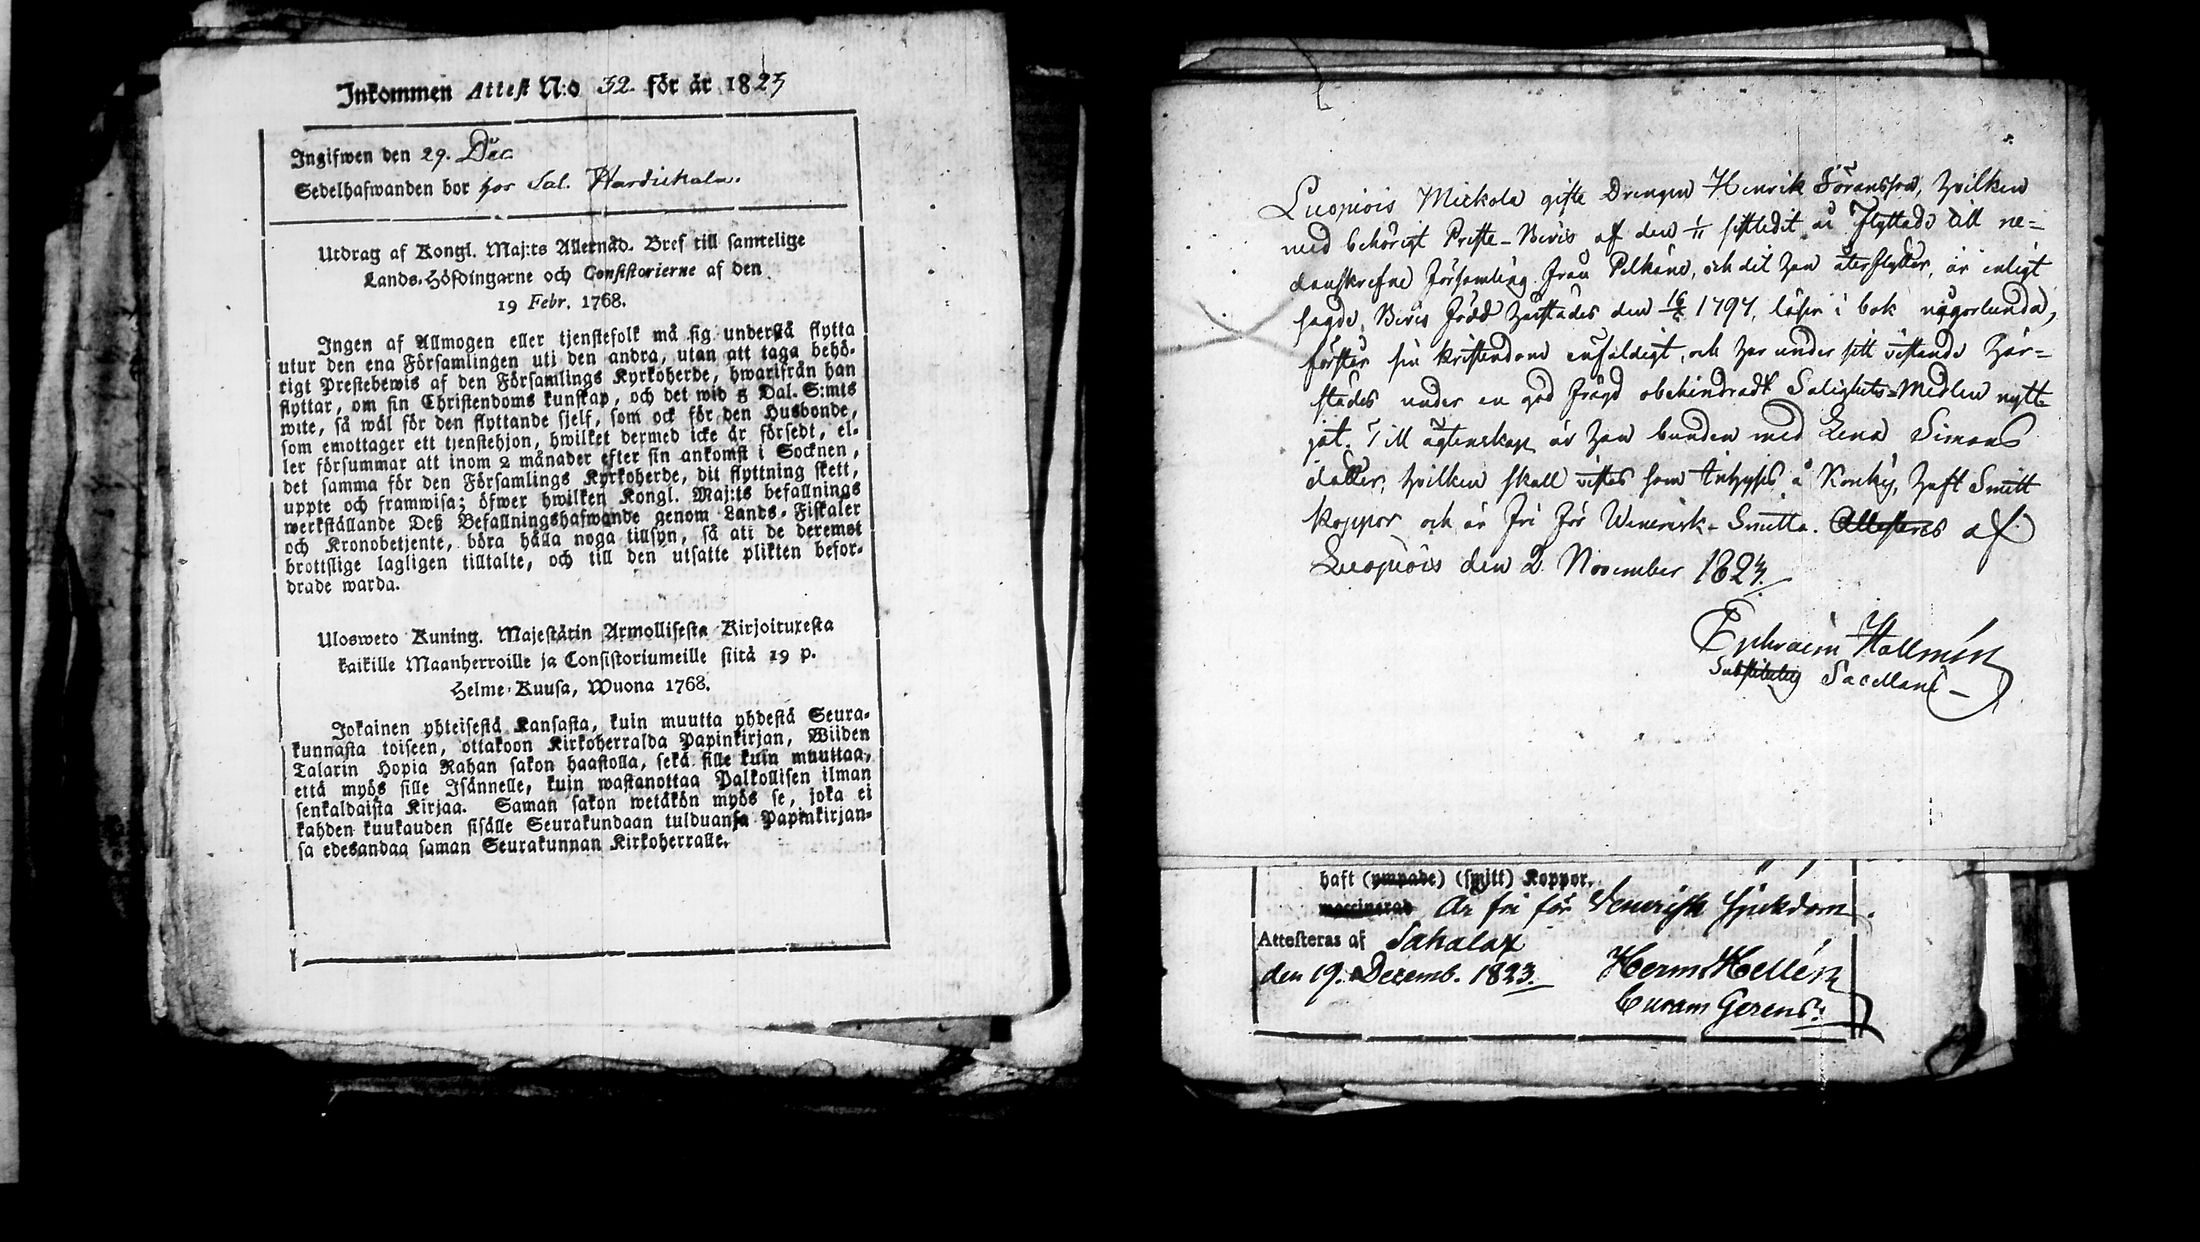 Inkommen Attest N:o 32. för år 1823
Ingifwen den 29. Dec.
Sedelhafwanden bor hos Sal.
Utdrag af Kongl. Maj:ts Allernåd. Bref till samtelige
Lands-Höfdingarne och Consistorierne af den
19 Febr. 1768.
Ingen af Allmogen eller tjenstefolk må sig understå flytta
utur den ena Församlingen uti den andra, utan att taga behö-
rigt Prestebewis af den Församlings Kyrkoherde, hwarifrån han
flyttar, om sin Christendoms kunskap, och det wid 5 Dal. S:mts
wite, så wäl för den flyttande sjelf, som ock för den Husbonde,
som emottager ett tjenstehjon, hwilket dermed icke är försedt, el-
ler försummar att inom 2 månader efter sin ankomst i Socknen,
det samma för den Församlings Kyrkoherde, dit flyttning skett,
uppte och framwisa; öfwer hwilken Kongl. Maj:ts befallnings
werkställande Deß Befallningshafwande genom Lands-Fiskaler
och Kronobetjente, böra hålla noga tillsyn, så att de deremot
brottslige lagligen tilltalte, och till den utsatte plikten befor-
drade warda.
Ulosweto Kuning. Majestätin Armollisesta Kirjoituxesta
kaikille Maanherroille ja Consistoriumeille siitä 19 p.
Helme-Kuusa, Wuona 1768.
Jokainen yhteisestä Kansasta, kuin muutta yhdestä Seura-
kunnasta toiseen, ottakoon Kirkoherralda Papinkirjan, Wiiden
Talarin Hopia Rahan sakon haastolla, sekä sille kuin muuttaa,
että myös sille Isännelle, kuin wastanottaa Palkollisen ilman
senkaldaista Kirjaa. Saman sakon wetäkön myös se, joka ei
kahden kuukauden sisälle Seurakundaan tulduansa Papinkirjan-
sa edesandaa saman Seurakunnan Kirkoherralle.
Luopiois Mickola gifte Drengen Henrik Göransson, hvilken
med behörigt Preste-Bevis af den 1/11 sistledit år flyttade till ne-
danskrefne församling från Pelkäne, och dit han återflyttar, är enligt
sagde Bevis född härstädes den 1797, läser i bok någorlunda,
förstår sin kristendom enfaldigt, och har under sitt vistande här-
städes under en god frägd obehindradt Salighets-Medlen nytt-
jat. Till ägtenskap är han bunden med Lena Simons
dotter, hvilken skall vistas som Inhyses å haft Smitt
koppor och är fri för Wenerisk-Smitta. Attesteras af
Luopiois den 2 November 1823.
Ephraim Hallmén
Substitutus Sacellani
haft (ympade) (smitt) Koppor.
waccinerad Är fri för Venerisk sjukdom.
Attesteras af Sahalax
den 19. Decemb. 1823. Herm. Hellén
Curam Gerens.